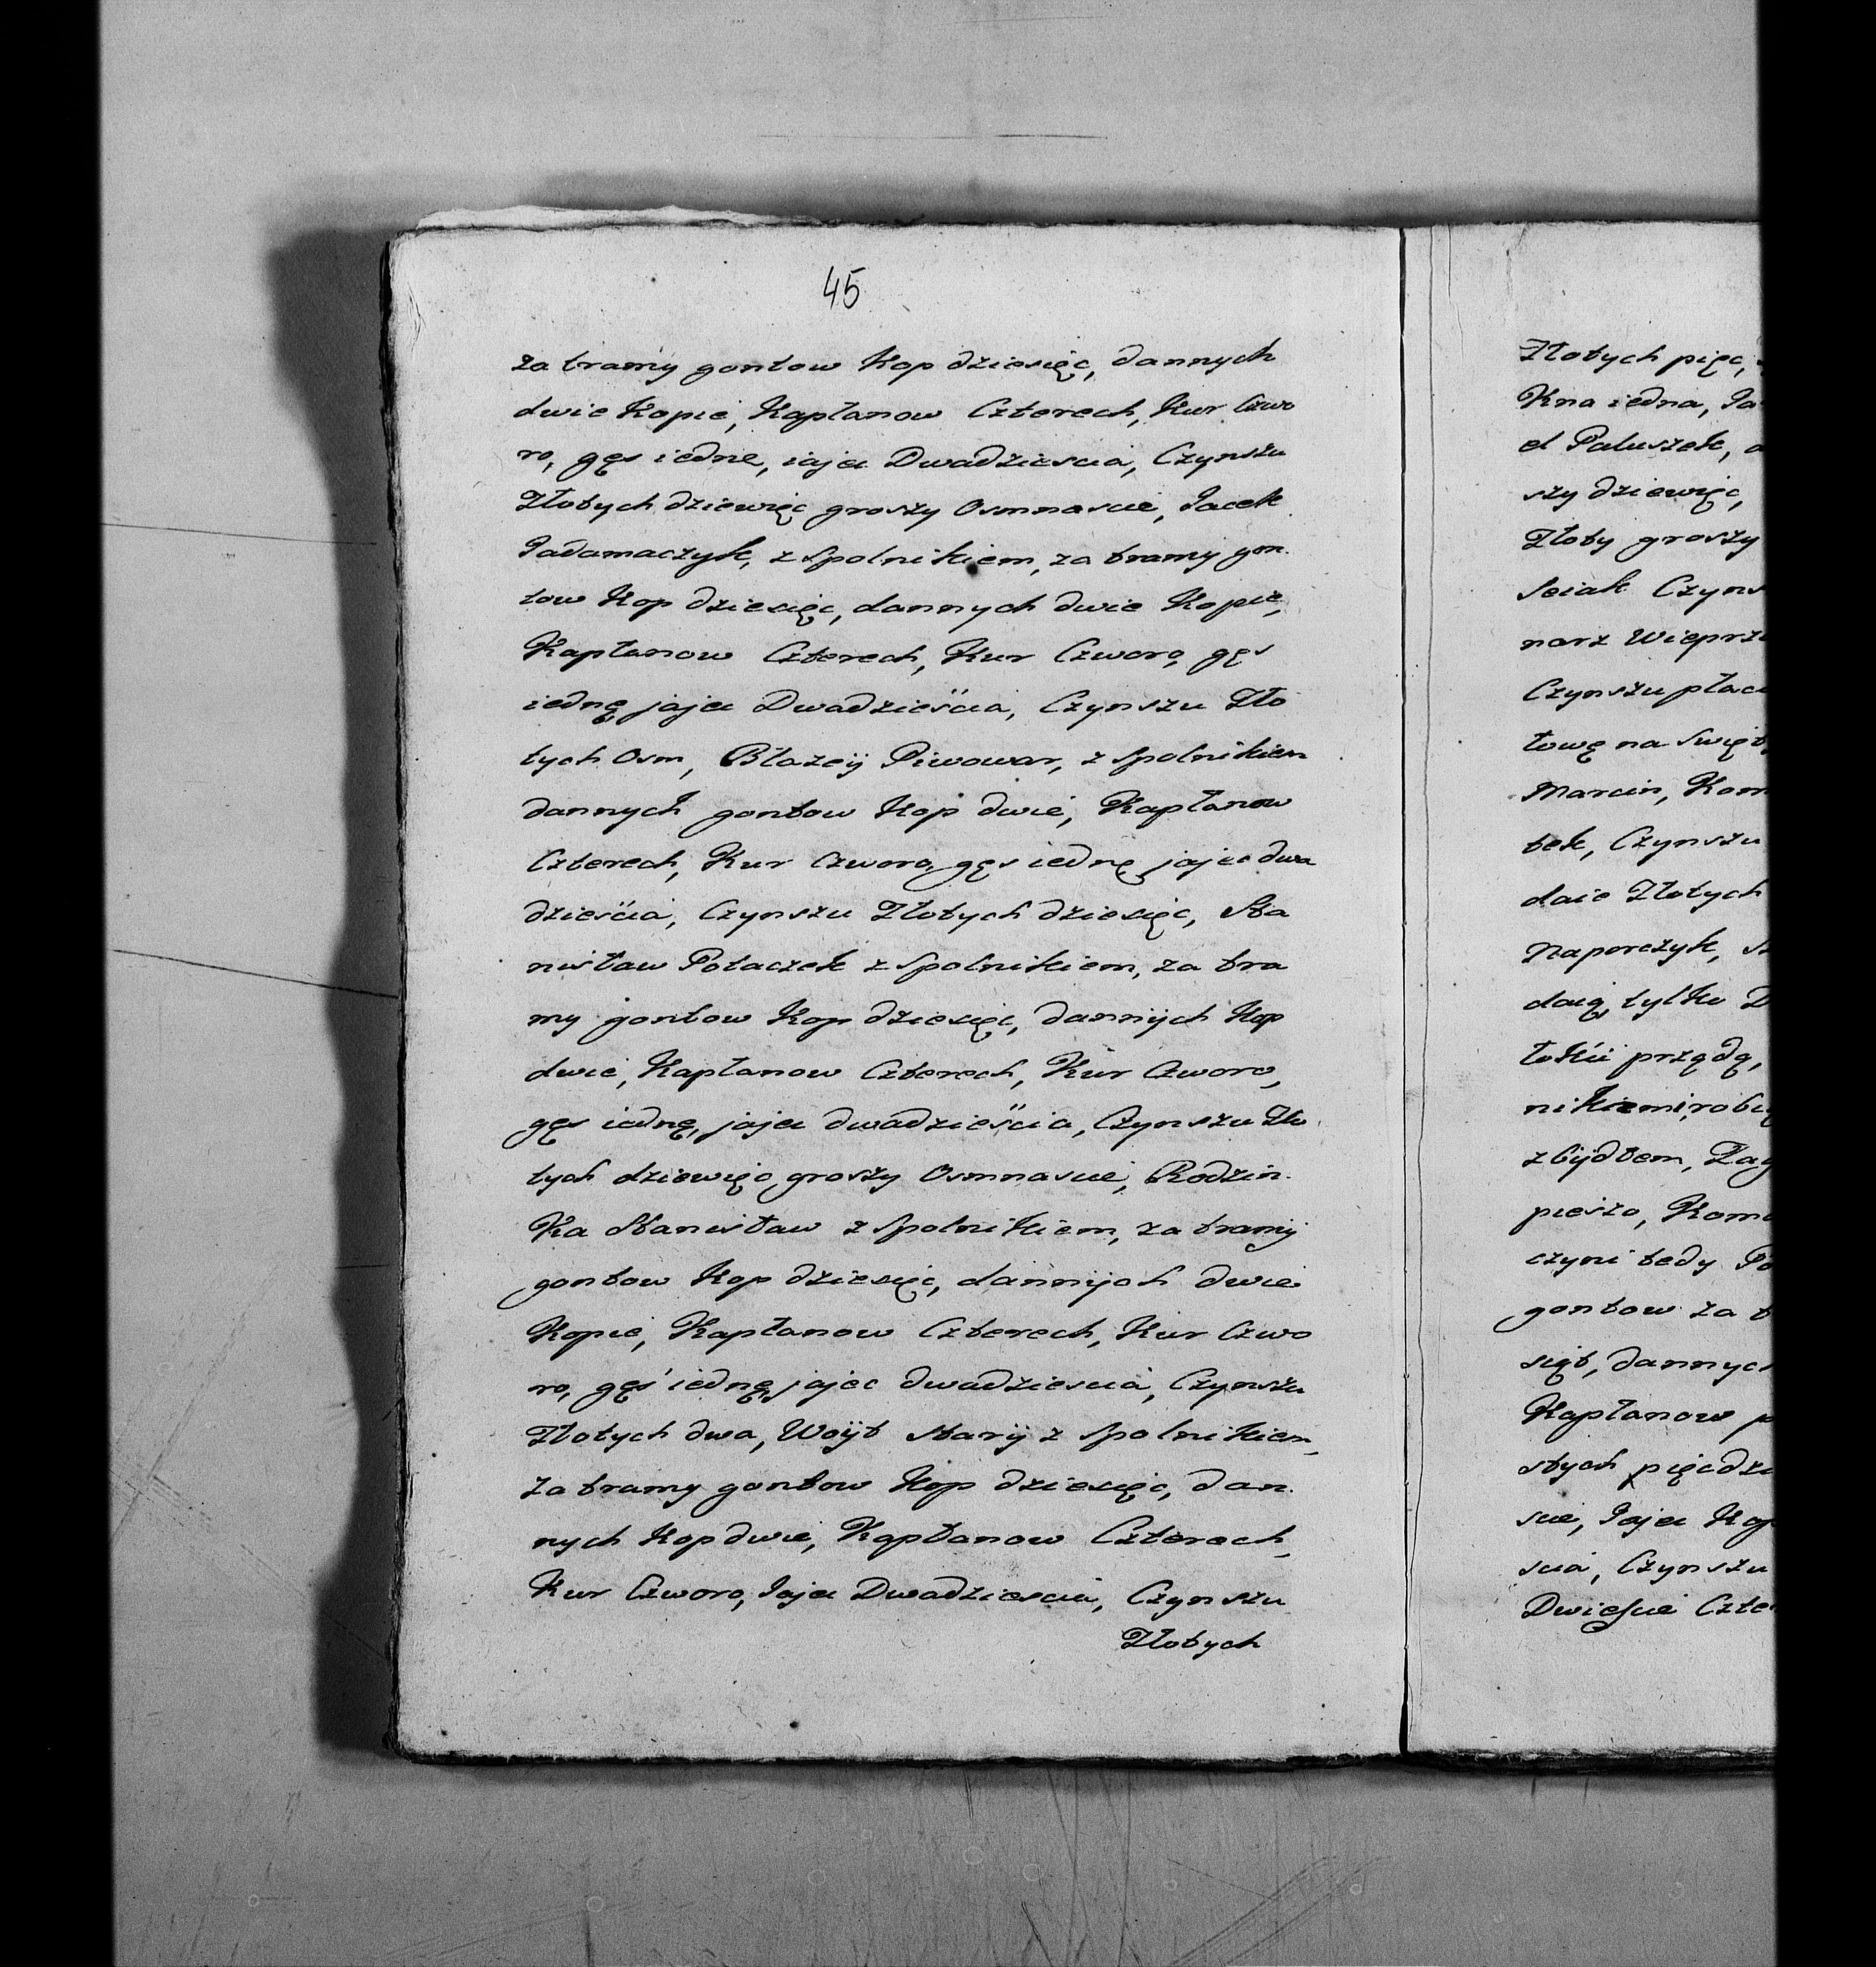 45
za tramy gontow Kop dziesięc, dannych
dwie Kopie, Kapłanow Czterech, Kur Czwo
ro, gęs iedne, iaja Dwadziescia, Czynszu
Złotych dziewięc groszy Osmnascie, Jacek
Jadamaczyk, z Spolnikiem, za tramy gon
tow Kop dziesięc, dannych dwie Kopie,
Kapłanow Czterech, Kur Czworo, gęs
iednę jaja Dwadzieścia, Czynszu Zło
tych Osm, Błazeÿ Piwowar, z Spolnikiem
dannych gontow Kop dwie, Kapłanow
Czterech, Kur Czworo, gęs iednę jajec dwa
dzieścia, Czynszu Złotych dziesięc, Sta
nisław Połaczek z Spolnikiem, za tra
my gontow Kop dziesięc, dannÿch Kop
dwie, Kapłanow Czterech, Kur Czworo,
gęs iednę, jaja dwadzieścia, Czynszu Zło
tych dziewięc groszy Osmnascie, Rodzin
Ka Stanisław z Spolnikiem, za tramÿ
gontow Kop dziesięc, dannÿch dwie
Kopie, Kapłanow Czterech, Kur Czwo
ro, gęś iednę, jajec dwadziescia, Czynszu
Złotych dwa, Woÿt starÿ z Spolnikiem,
za tramy gontow Kop dziesięc, dan
nych Kop dwie, Kapłanow Czterech,
Kur Czworo, Jaja Dwadziescia, Czynszu
Złotych
Złotych pięc,
Kna iedna,
el Paluszek,
szy dziewięc,
Złoty groszy
siak
narz
Czynszu
towę na
Marcin,
tek, Czynszu
daie Złotych
Naporczyk,
daią tylko
łokci przędą,
z bÿdłem,
pieszo,
czyni tedy
gontow za
siąt,
Kapłanow
stych
scie, Jaja
scia, Czynszu
Dwiescie